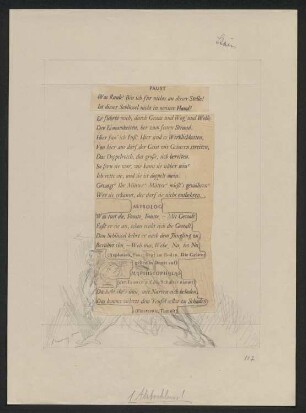 FAUST
Was Raub! Bin ich für nichts an dieser Stelle!
Ist dieser Schlüssel nicht in meiner Hand!
Er führte mich, durch Graus und Wog' und Welle
Der Einsamkeiten, her zum festen Strand.
Hier fass' ich Fuß! Hier sind es Wirklichkeiten,
Von hier aus darf der Geist mit Geistern streiten,
Das Doppelreich, das große, sich bereiten.
So fern sie war, wie kann sie näher sein!
Ich rette sie, und sie ist doppelt mein.
Gewagt! Ihr Mütter! Mütter! müßt's gewähren!
Wer sie erkannt, der darf sie nicht entbehren.
ASTROLOG
Was tust du, Fauste, Fauste! – Mit Gewalt
Faßt er sie an, schon trübt sich die Gestalt.
Den Schlüssel kehrt er nach dem Jüngling zu,
Berührt ihn. – Weh uns, Wehe! Nu! Im Nu!
Explosion, Faust liegt am Boden. Die Geister
gehen in Dunst auf.
MEPHISTOPHELES
der Fausten auf die Schulter nimmt
Da habt ihr's nun! mit Narren sich beladen,
Das kommt zuletzt dem Teufel selbst zu Schaden.
Finsternis, Tumult.
112